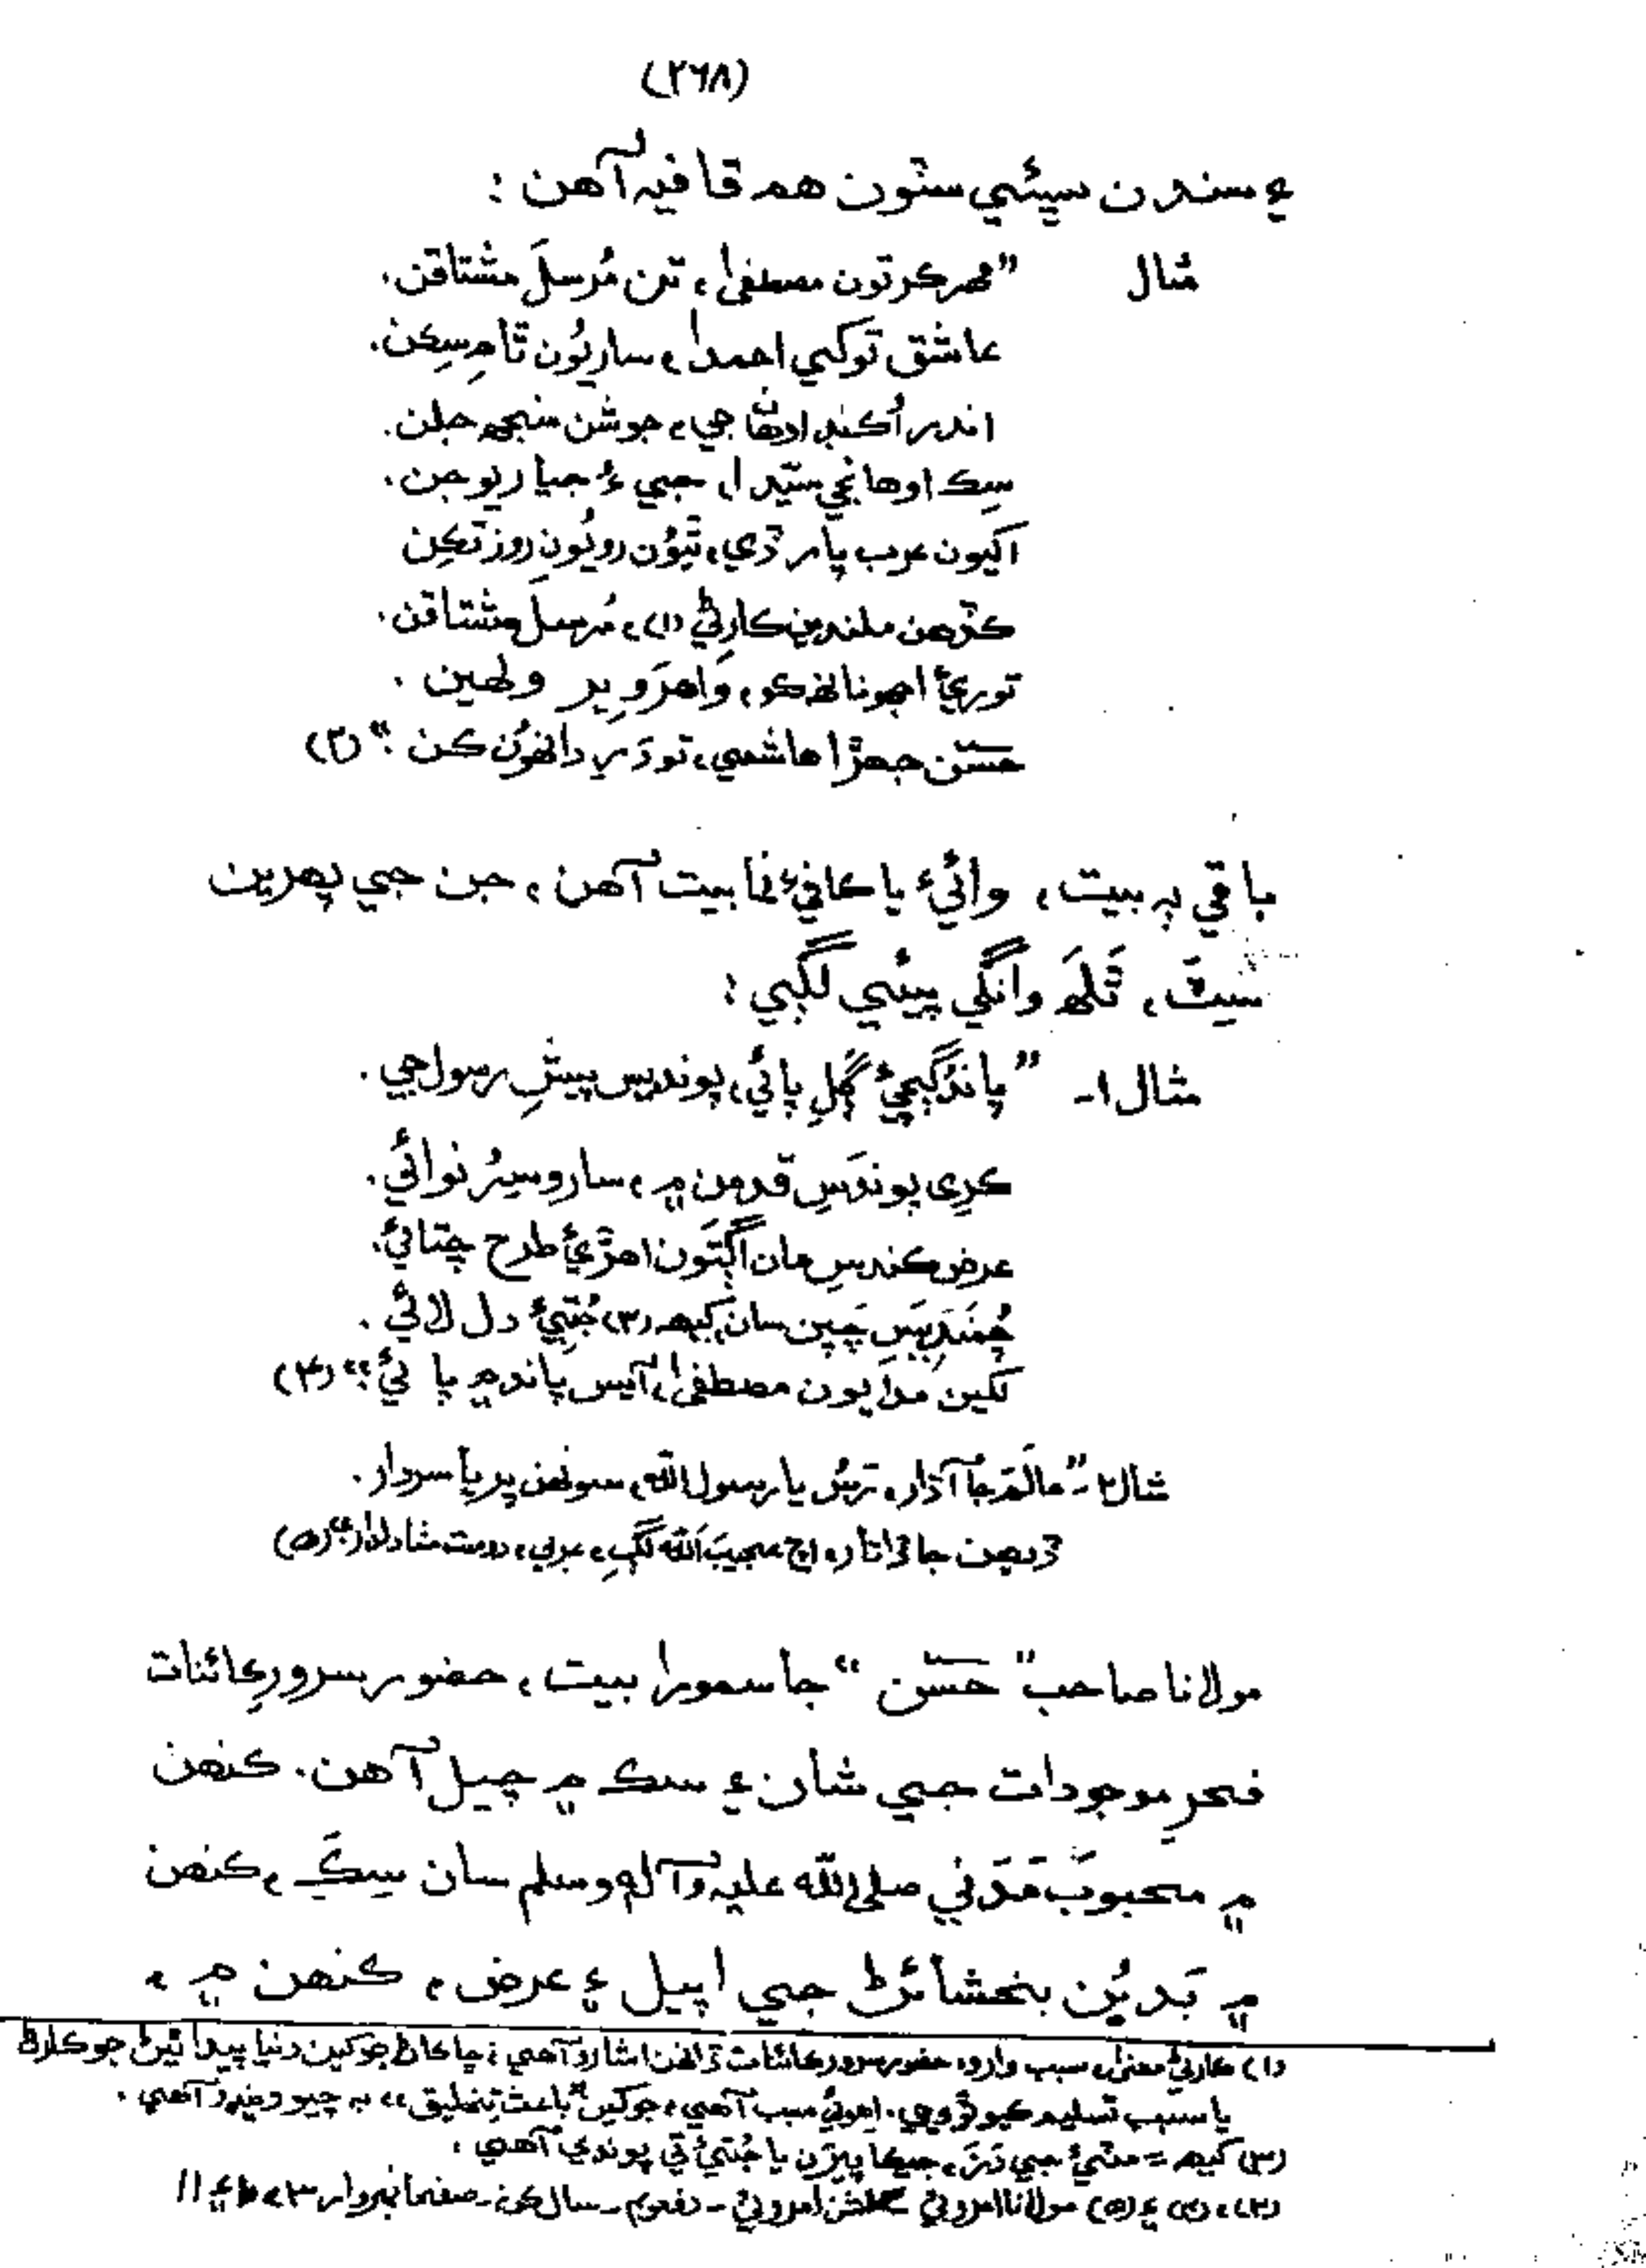 (۲۶۸)
۽ سندن سڀئي سٽون هم قافيہ آهن :
مثال "مهر ڪر تون مصطفيٰ، تن مُرسلَ مشتاقن.
عاشق توکي احمدا، ساريُون تامِ سِڪن.
اندر اُڪنڊ اوهان جي، جوشن منجهہ جلن.
سِڪ اوهانجي سيّدا، جيءُ جياريو جن.
اکيون عرب پار ڏي، تيوُن رويُون روز تڪِن
ڪڏهن ملندين ڪارِڻي (۱)، مُرسلَ مشتاقن.
توريءَ اجهو نانهہ ڪو، واهرَو وِير ولهين .
حسّن جهڙا هاشمي، تو دَرِ دانهوُن ڪن ." (۲)
باقي ٻہ بيت، وائيءَ يا ڪافيءَ نما بيت آهن، جن جي پهرين
سِٽَ، ٿَلهَ وانگي پيئي لڳي :
مثال ۱- "پاند ڳچيءَ ڳلِ پائي، پونديس پيشِ رسول جي .
ڪري پوندَسِ قدمن ۾، سارو سِرُ نوائي.
عرض ڪندس مان اڳتَون اهڙيءَ طرح چتائي.
چُمَندِيَسِ چَپن سان کيهہ (۳) جُتيءَ دل لائي .
لکين مدايون مصطفيٰ، آيس پاند ۾ پائي ." (۴)
مثال ۲- "عالَم جا آڌار، ترسُ يا رسول اللہ، سونهن ڀريا سردار .
ڏيهن جا ڏاتار، اچ عجيبَ اَللہ لڳِ، عربي، دوست مٺا دلدار." (۵)
مولانا صاحب "حَسّن" جا سمورا بيت، حضور سرورِ ڪائنات
فخرِ موجودات جي شان ۽ سڪ ۾ چيل آهن. ڪنهن
۾ محبوبَ مَدَني صلي اللہ عليہ وآلہٖ وسلم سان سِڪَ، ڪنهن
۾ بَديُن بخشائڻ جي اپيل ۽ عرض، ڪنهن ۾،
(۱) ڪارڻيءَ معنيٰ، سبب وارو، حضور سرور ڪائنات ڏانهن اشارو آهي؛ ڇاڪاڻ جو کين دنيا پيدا ٿيڻ جو ڪارڻ
يا سبب تسليم ڪيو ٿو وڃي. اهوئي سبب آهي، جو کين "باعثِ تخليق" بہ چيو ويندو آهي .
(۳) کيهہ = مٽيءَ جي دَزَ، جيڪا پيرَن يا جُتيءَ تي پوندي آهي .
(۲)، (۴) ۽ (۵) مولانا امروٽي گلشن امروٽي - دفعوم - سال ڪونہ - صفحا نمبروار ۳،